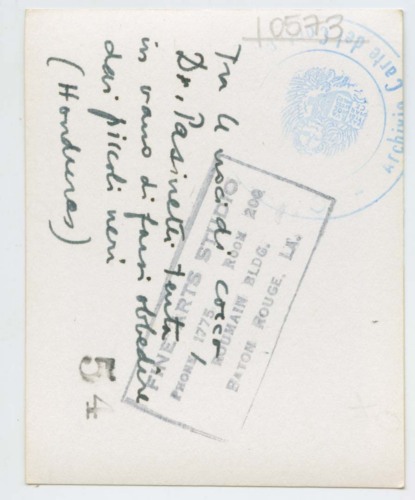 10573
Archivio Carte del
Tra le noci di cocco
Dr. Pasinetti tenta
in vano di farsi obbedire
dai piccoli neri
(Honduras)
FINE ARTS STUDIO
PHONE 1775 ROOM 200
ROUMAIN BLDG.
BATON ROUGE, LA.
54